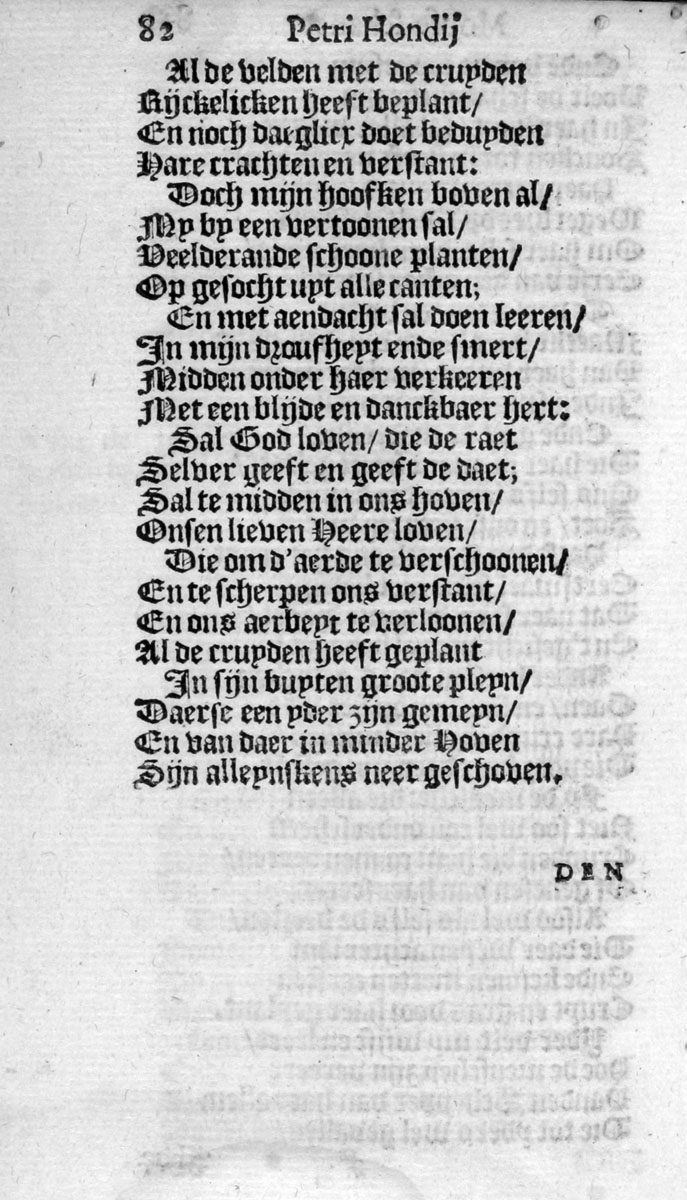 82 Petri Hondij
Al de velden met de cruyden
Rijckelicken heeft beplant/
En noch daeglicx doet beduyden
Hare crachten en verstant:
Doch mijn hoofken boven al/
My by een vertoonen sal/
Veelderande schoone planten/
Op gesocht uyt alle canten;
En met aendacht sal doen leeren/
In mijn droufheyt ende smert/
Midden onder haer verkeeren
Met een blijde en danckbaer hert:
Sal God loven/ die de raet
Selver geeft en geeft de daet;
Sal te midden in ons hoven/
Onsen lieven Heere loven/
Die om d'aerde te verschoonen/
En te scherpen ons verstant/
En ons aerbeyt te verloonen/
Al de cruyden heeft geplant
In sijn buyten groote pleyn/
Daerse een yder zijn gemeyn/
En van daer in minder Hoven
Sijn alleynskens neer geschoven.
DEN